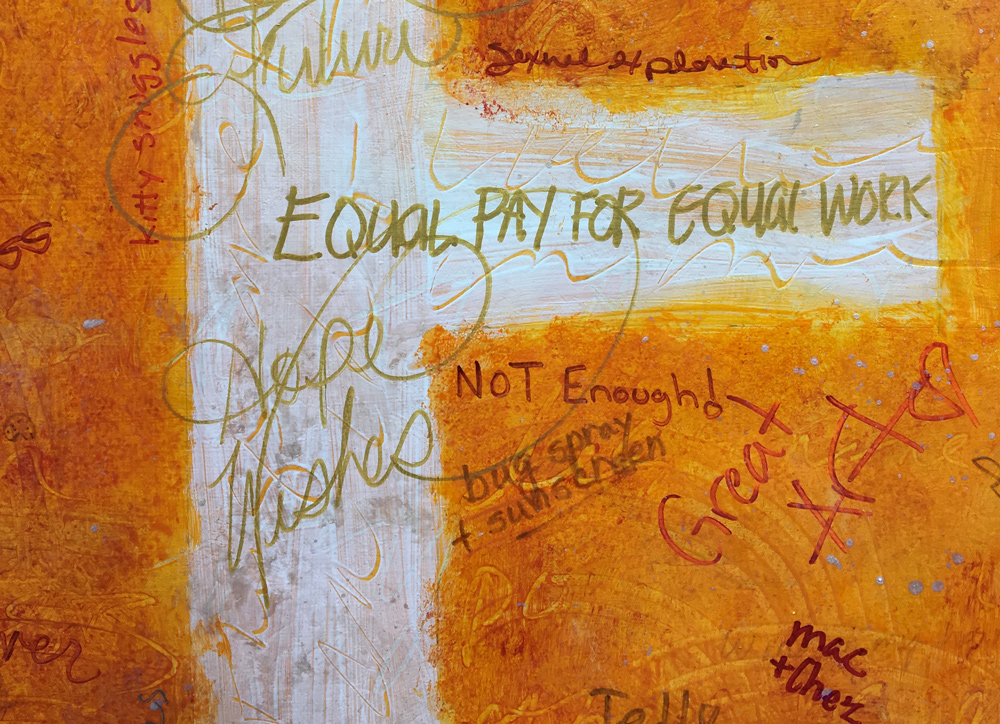 Future
sexual exploration
kitty snuggles
EQUAL PAY FOR EQUAL WORK
Hope
Wishes
NOT Enough!
bug spray
+ sunscreen
Great
Art
mac
+ Cher